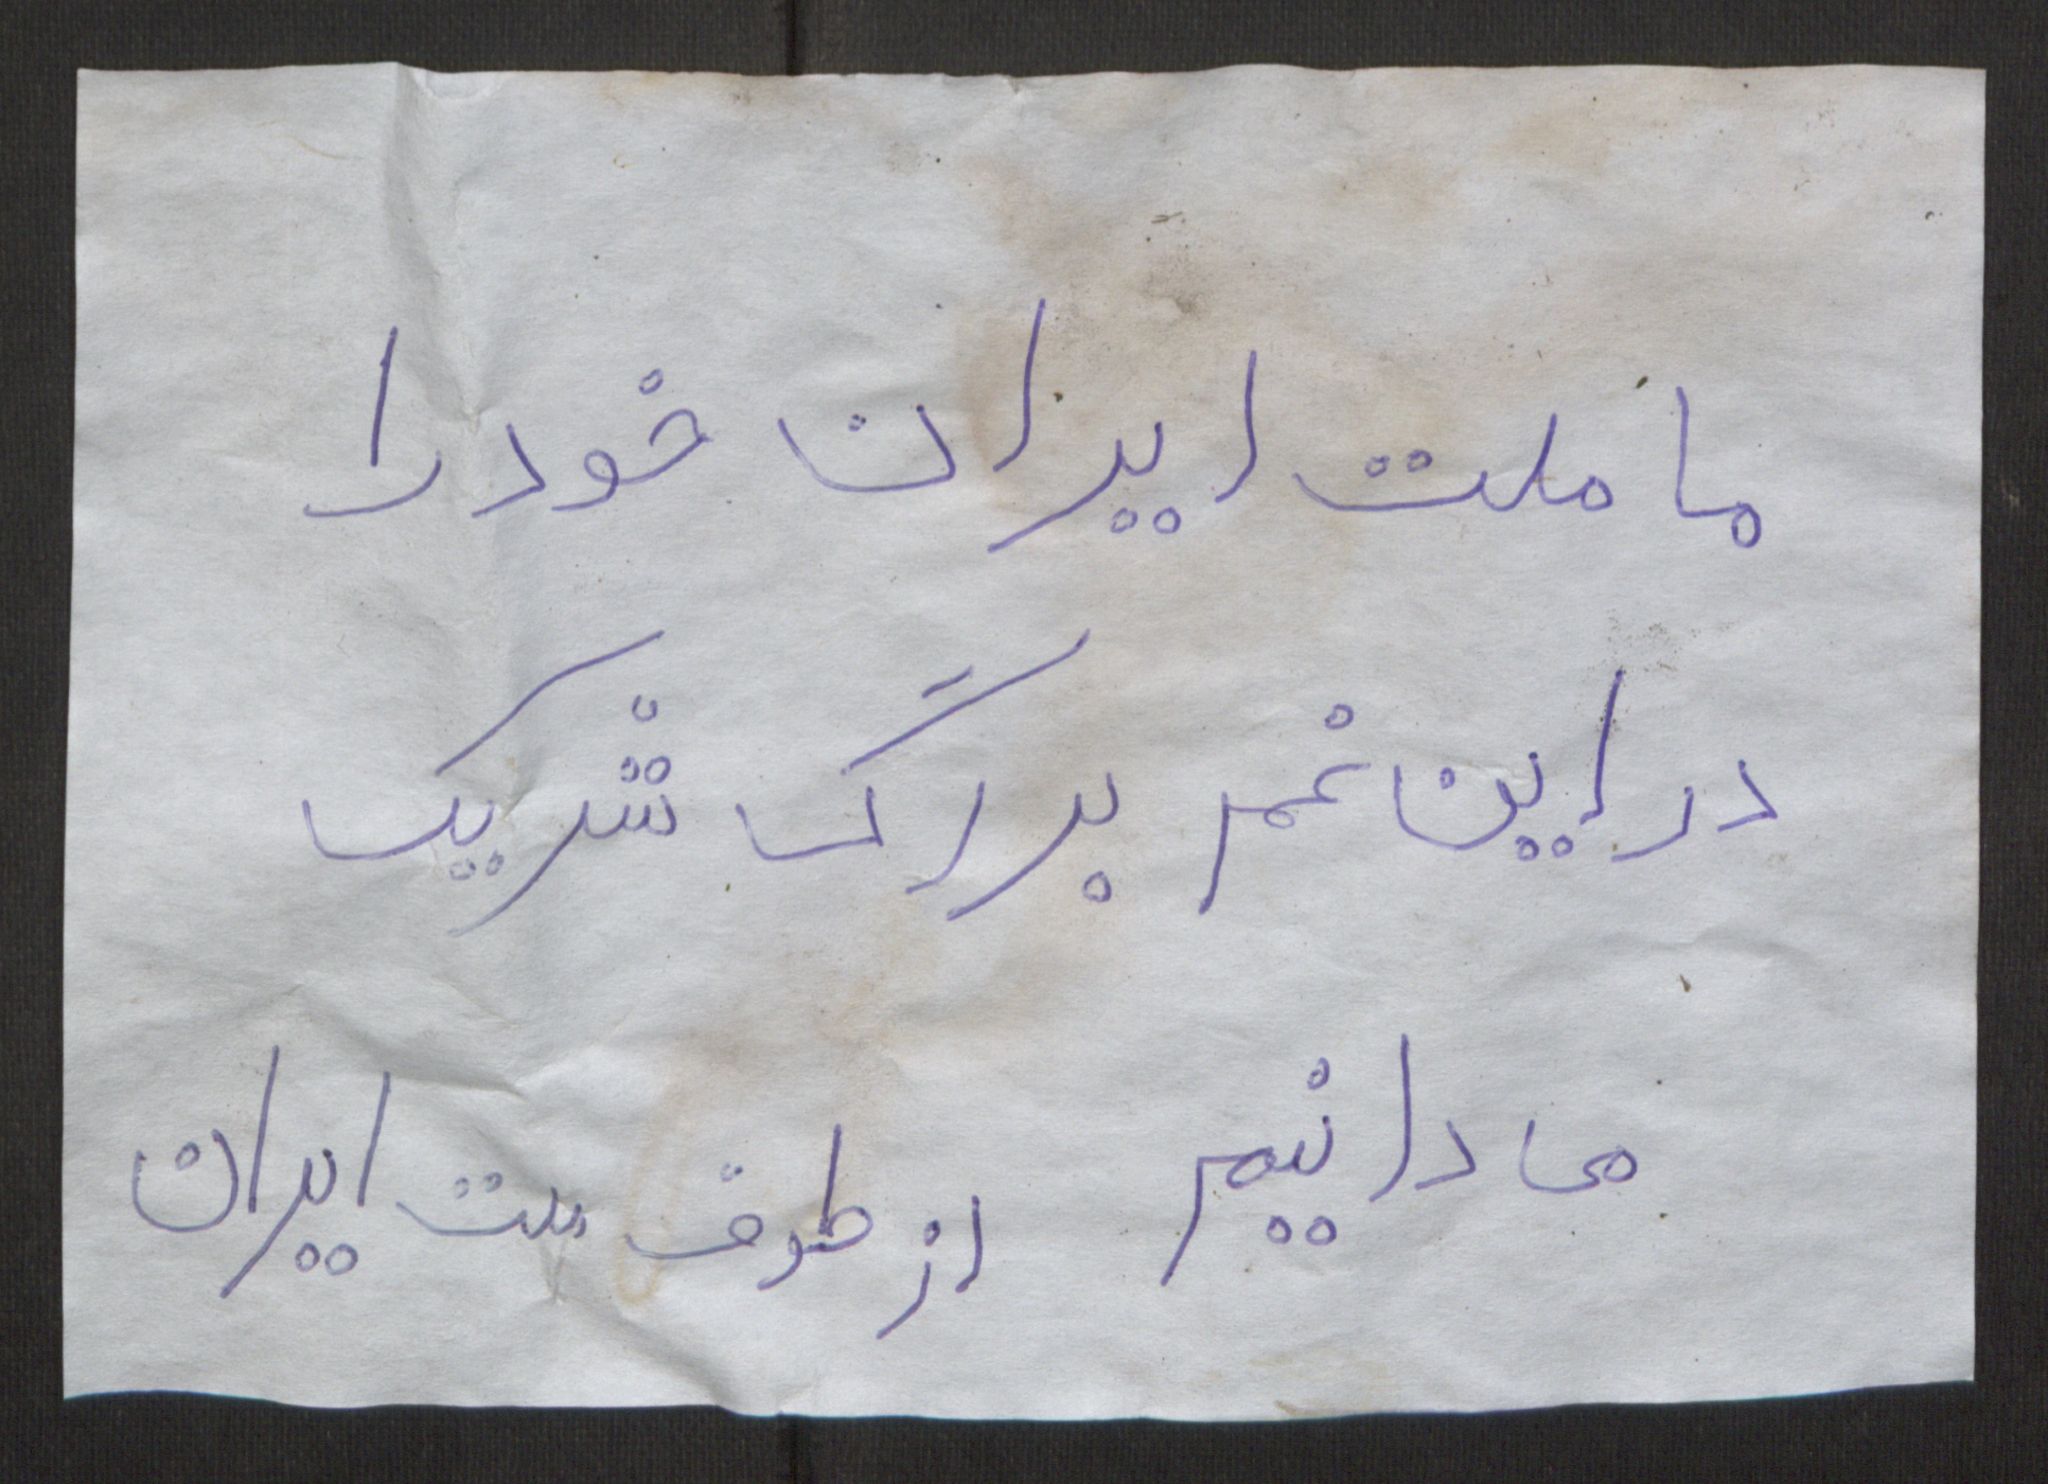 ما ملت ایران خود را
در این غم بزرگ شریک
می دانیم از طرف ملت ایران